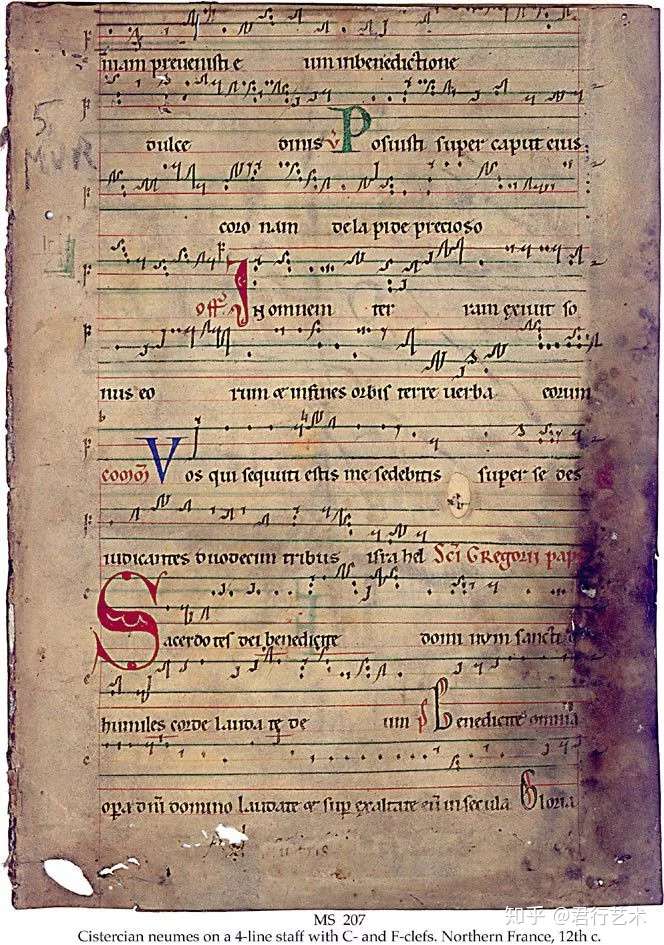 niam prevenisti e um inbenedictione
5
MVR
dulce dinis v Posuisti super caput eius
coro nam dela pide precioso
off In omnem ter ram exivit so
nus eo rum & infines orbis terre verba eorum
Vos qui sequuti estis me sedebitis super se des
iudicantes duodecim tribus isra hel Sci Gregorii pap
Sacerdotes dei benedicite domi num sancti
humiles corde lauda te de um Benedicite omnia
opera domino Laudate & exaltate insecula Gloria
知乎 @君行艺术
MS 207
Cistercian neumes on a 4-line staff with C- and F-clefs. Northern France, 12th c.